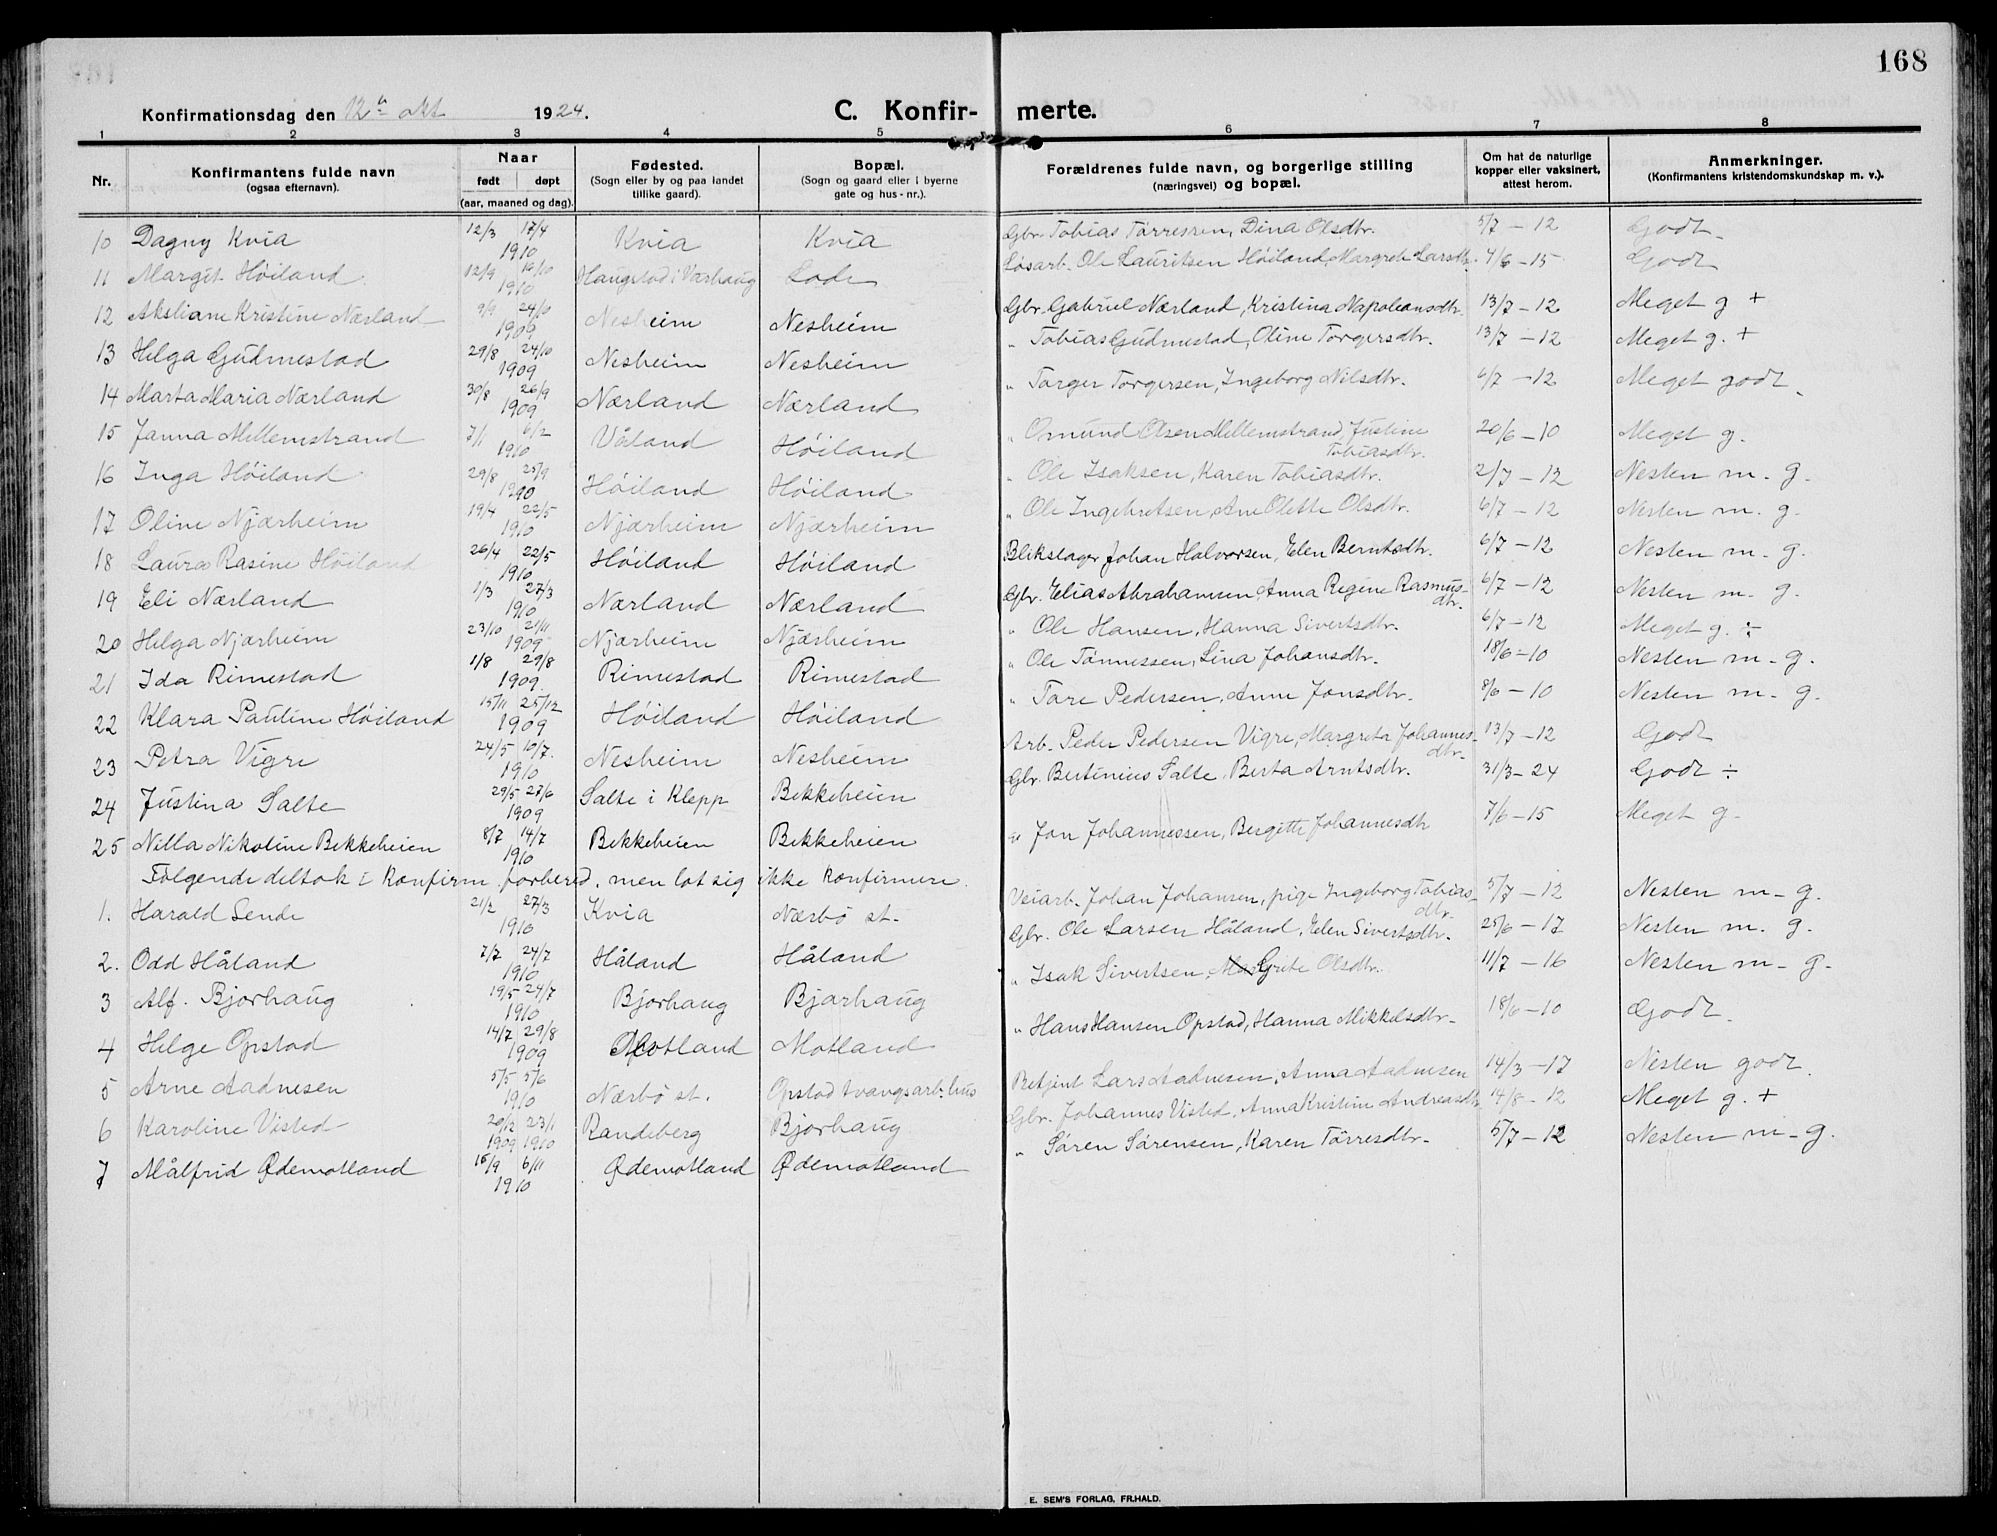 168
Konfirmationsdag den 12te okt 1924. C. Konfir- merte.
1 2 3 4 5 6 7 8
Nr. Konfirmantens fulde navn (ogsaa efternavn). Naar født døpt (aar, maaned og dag). Fødested. (Sogn eller by og paa landet tillike gaard). Bopæl. (Sogn og gaard eller i byerne gate og hus-nr.). Forældrenes fulde navn, og borgerlige stilling (næringsvei) og bopæl. Om hat de naturlige kopper eller vaksinert, attest herom. Anmerkninger. (Konfirmantens kristendomskundskap m. v.).
10 Dagny Kvia 12/3 17/4 1910 Kvia Kvia Gbr. Tobias Tørressen, Dina Olsdtr. 5/7 – 12 Godt
11 Margit Høiland 12/9 16/10 1910 Haugstad i Varhaug Lode Løsarb. Ole Lauritsen Høiland, Margrete Larsdtr. 4/6 – 15 Godt
12 Aksliane Kristine Nærland 9/9 24/10 1909 Nesheim Nesheim Gbr. Gabriel Nærland, Kristina Napoleonsdtr. 13/7 – 12 Meget g +
13 Helga Gudmestad 29/8 24/10 1909 Nesheim Nesheim " Tobias Gudmestad, Oline Torgersdtr. 13/7 – 12 Meget g. +
14 Marta Maria Nærland 30/8 26/9 1909 Nærland Nærland " Torger Torgersen, Ingeborg Nilsdtr. 6/7 – 12 Meget godt
15 Janna Mellemstrand 7/1 6/2 1910 Våland Høiland " Omund Olsen Mellemstrand, Justine Tobiasdtr. 20/6 – 10 Meget g.
16 Inga Høiland 29/8 25/9 1910 Høiland Høiland " Ole Isaksen, Karen Tobiasdtr. 2/7 – 12 Nesten m. g.
17 Oline Njærheim 19/4 22/5 1910 Njærheim Njærheim " Ole Ingebretsen, Ane Olette Olsdtr. 6/7 – 12 Nesten m. g.
18 Laura Rasine Høiland 26/4 22/5 1910 Høiland Høiland Blikslager Johan Halvorsen, Elen Berntsdtr. 6/7 – 12 Nesten m. g.
19 Eli Nærland 1/3 27/3 1910 Nærland Nærland Gbr. Elias Abrahamsen, Anna Regine Rasmus-dtr. 6/7 – 12 Nesten m. g.
20 Helga Njærheim 23/10 21/11 1909 Njærheim Njærheim " Ole Hansen, Hanna Sivertsdtr. 6/7 – 12 Meget g. ÷
21 Ida Rimestad 1/8 29/8 1909 Rimestad Rimestad " Ole Tønnessen, Lina Johansdtr. 18/6 – 10 Nesten m. g.
22 Klara Pauline Høiland 15/11 25/12 1909 Høiland Høiland " Tore Pedersen, Anne Jonsdtr. 8/6 – 10 Nesten m. g.
23 Petra Vigre 24/5 10/7 1910 Nesheim Nesheim Arb. Peder Pedersen Vigre, Margreta Johannes-dtr. 13/7 – 12 Godt
24 Justina Salte 29/5 27/6 1909 Salte i Klepp Bekkeheien Gbr. Bertinius Salte, Berta Arntsdtr. 31/3 – 24 Godt ÷
25 Nilla Nikoline Bekkeheien 8/7 14/7 1910 Bekkeheien Bekkeheien " Jon Johannessen, Bergitte Johannesdtr 7/6 – 15 Meget g.
Følgende deltok i konfirm. forbered. men lot sig ikke konfirmere.
1. Harald Sende 21/2 27/3 1910 Kvia Nærbø st. Veiarb. Johan Johansen, pige Ingeborg Tobias-dtr. 5/7 – 12 Nesten m. g.
2. Odd Håland 7/7 24/7 1910 Håland Håland Gbr. Ole Larsen Håland, Elen Sivertsdtr. 25/6 – 17 Nesten m. g.
3 Alf. Bjorhaug 19/5 24/7 1910 Bjorhaug Bjorhaug " Isak Sivertsen, Grete Olsdtr. 11/7 – 16 Nesten m. g.
4 Helge Opstad 14/7 29/8 1909 Motland Motland " Hans Hansen Opstad, Hanna Mikkelsdtr. 18/6 – 10 Godt
5 Arne Aadnesen 5/5 5/6 1910 Nærbø st. Opstad tvangsarb.hus Betjent Lars Aadnesen, Anna Aadnesen 14/3 – 17 Nesten godt
6 Karoline Visted 20/12 23/1 1909 1910 Randeberg Bjorhaug Gbr. Johannes Visted, Anna Kristine Andreasdtr 14/8 – 12 Meget g. +
7 Målfrid Ødemotland 15/9 6/11 1910 Ødemotland Ødemotland " Søren Sørensen, Karen Tørresdtr. 5/7 – 12 Nesten m. g.
E. SEM'S FORLAG, FR.HALD.